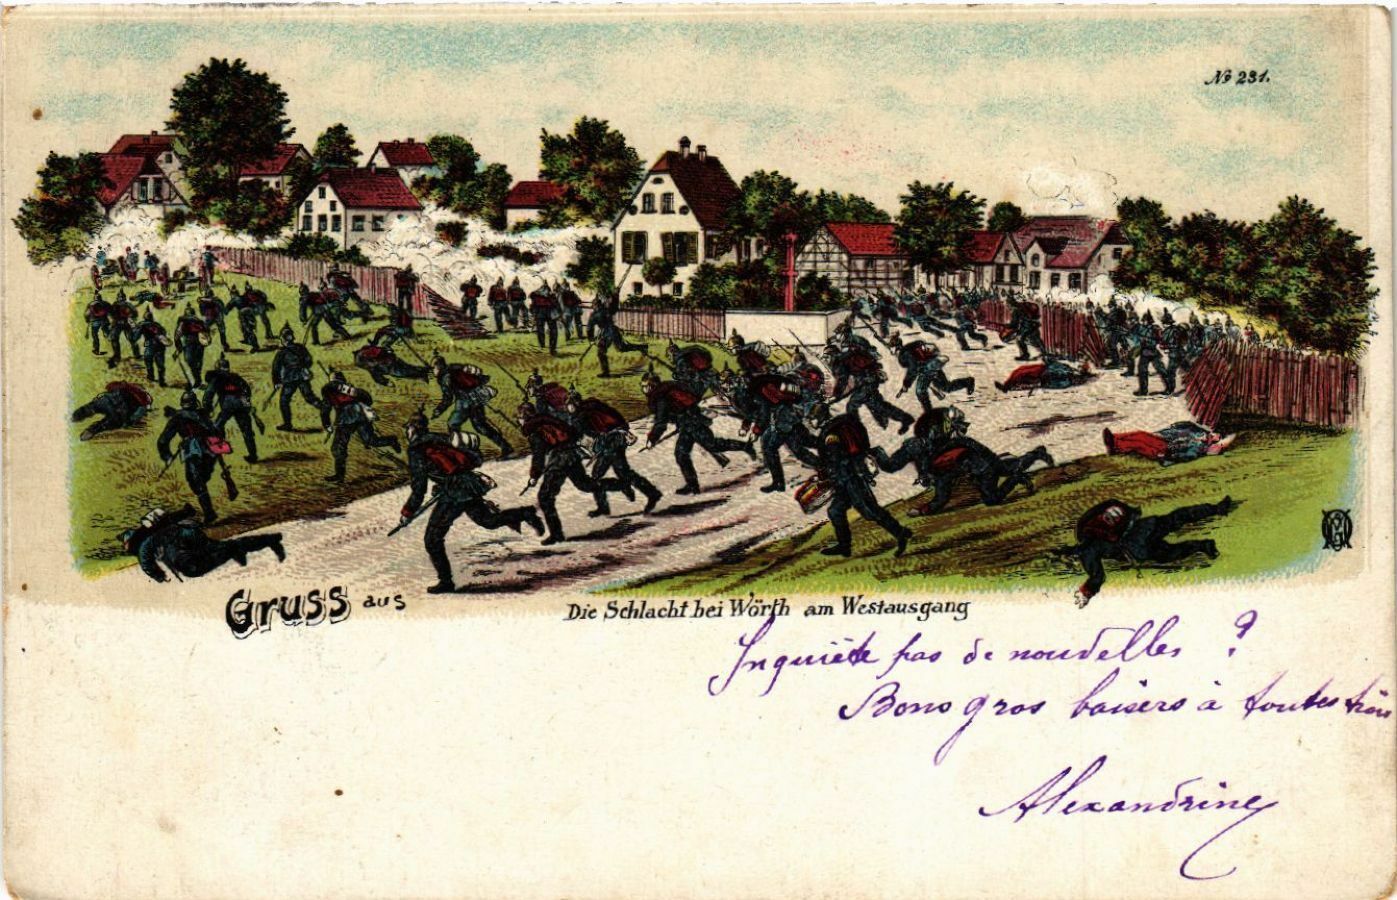 No 231.
Gruss aus
Die Schlacht bei Wörth am Westausgang
Inquiète pas de nouvelles ?
Bons gros baisers à toutes trois
Alexandrine